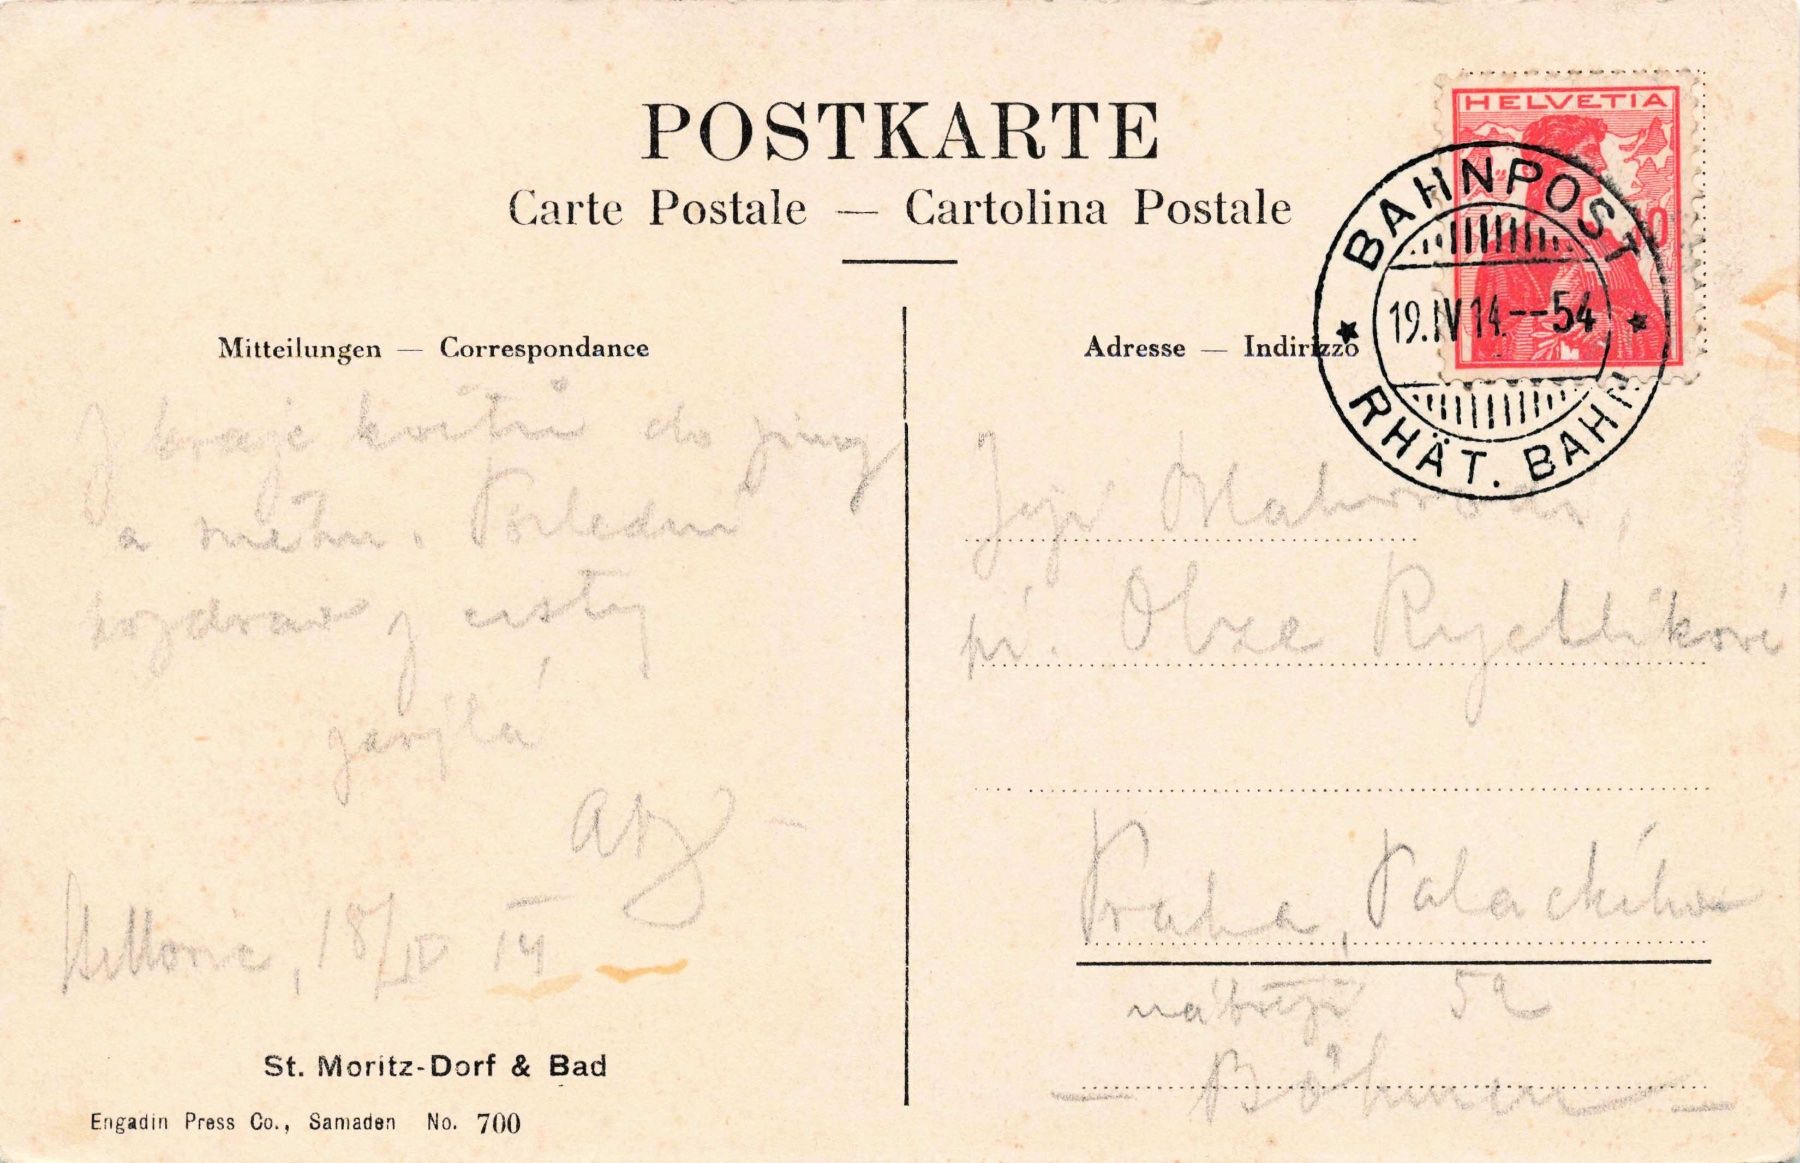 POSTKARTE
Carte Postale — Cartolina Postale
HELVETIA
10
BAHNPOST
19.IV 14.--54
RHÄT. BAHN
Mitteilungen — Correspondance
Z kraje květů do zimy
a sněhu. Poslední
pozdrav z cesty
zasýlá
St. Moric, 18/IV 14
St. Moritz-Dorf & Bad
Engadin Press Co., Samaden No. 700
Adresse — Indirizzo
Její Blahorodí,
pí. Olze Rychlíkové
Praha, Palackého
nábřeží 52
— Böhmen —